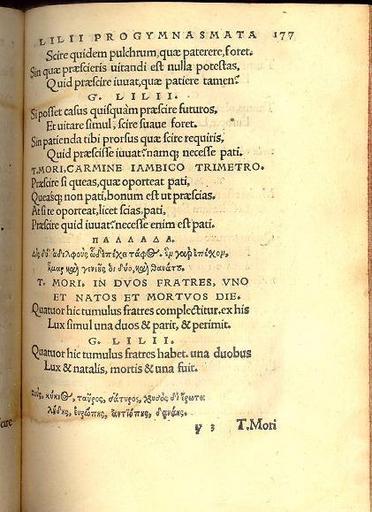 LILII PROGYMNASMATA 177
Scire quidem pulchrum, quæ paterere, foret.
Sin quæ præscieris uitandi est nulla potestas,
Quid præscire iuuat, quæ patiere tamen?
G. LILII.
Si posset casus quisquam præscire futuros,
Et uitare simul, scire suaue foret.
Sin patienda tibi prorsus quæ scire requiris,
Quid præscisse iuuat? namq; necesse pati.
T. MORI, CARMINE IAMBICO TRIMETRO.
Præscire si queas, quæ oporteat pati,
Queasq; non pati, bonum est ut præscias.
At si te oporteat, licet scias, pati,
Præscire quid iuuat? necesse enim est pati.
ΠΑΛΛΑΔΑ.
T. MORI, IN DVOS FRATRES, VNO
ET NATOS ET MORTVOS DIE.
Quatuor hic tumulus fratres complectitur. ex his
Lux simul una duos & parit, & perimit.
G. LILII.
Quatuor hic tumulus fratres habet. una duobus
Lux & natalis, mortis & una fuit.
Ζεὺς, κύκνος, ταῦρος, σάτυρος, χρυσὸς δι' ἔρωτα
λήδης, εὐρώπης, ἀντιόπης, δανάης.
y 3 T. Mori